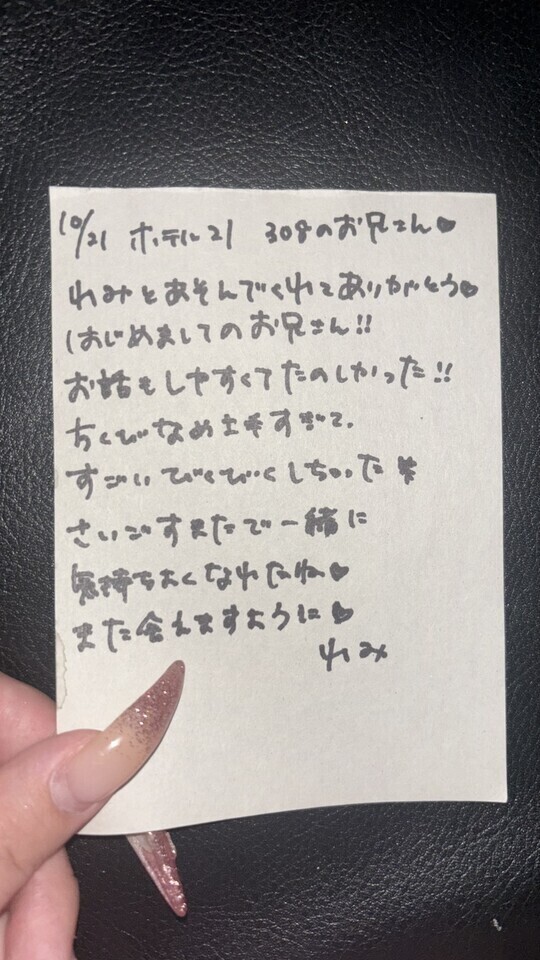 10/21 ホテル21 308のお兄さん♥
れみとあそんでくれてありがとう♥
はじめましてのお兄さん!!
お話もしやすくてたのしかった!!
ちくびなめ上手すぎて、
すごいびくびくしちゃった
さいごすまたで一緒に
気持ちよくなれたね♥
また会えますように♥
れみ